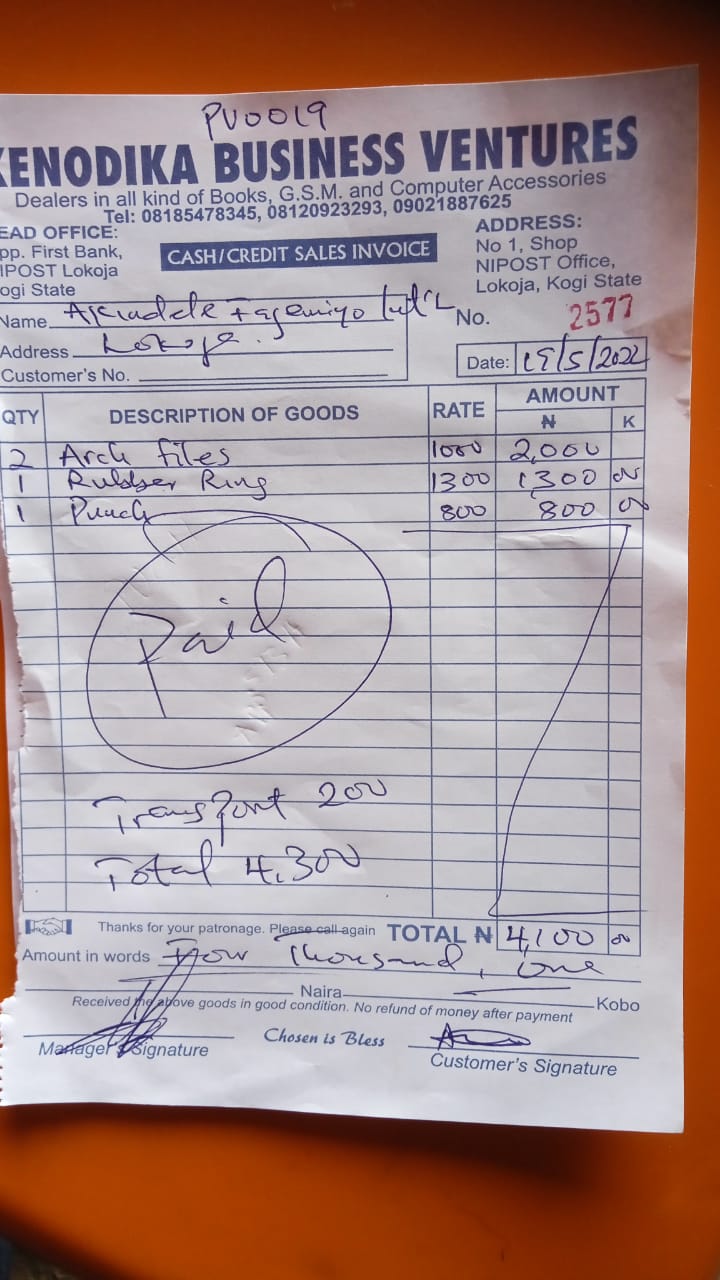 PV0019
KENODIKA BUSINESS VENTURES
Dealers in all kind of Books, G.S.M. and Computer Accessories
Tel: 08185478345, 08120923293, 09021887625
EAD OFFICE:
pp. First Bank,
IPOST Lokoja
ogi State
CASH/CREDIT SALES INVOICE
ADDRESS:
No 1, Shop
NIPOST Office,
Lokoja, Kogi State
Name Akindele Fagemiyo Int'L
No. 2577
Address Lokoja.
Customer's No.
Date: 19/5/2022
QTY DESCRIPTION OF GOODS RATE AMOUNT
₦ K
2 Arch files 1000 2,000
1 Rubber Ring 1300 1300 00
1 Punch 800 800 00
Paid
Transport 200
Total 4,300
Thanks for your patronage. Please call again TOTAL ₦ 4,100 00
Amount in words Four Thousand, one
Naira Kobo
Received the above goods in good condition. No refund of money after payment
Manager's Signature
Chosen is Bless
Customer's Signature